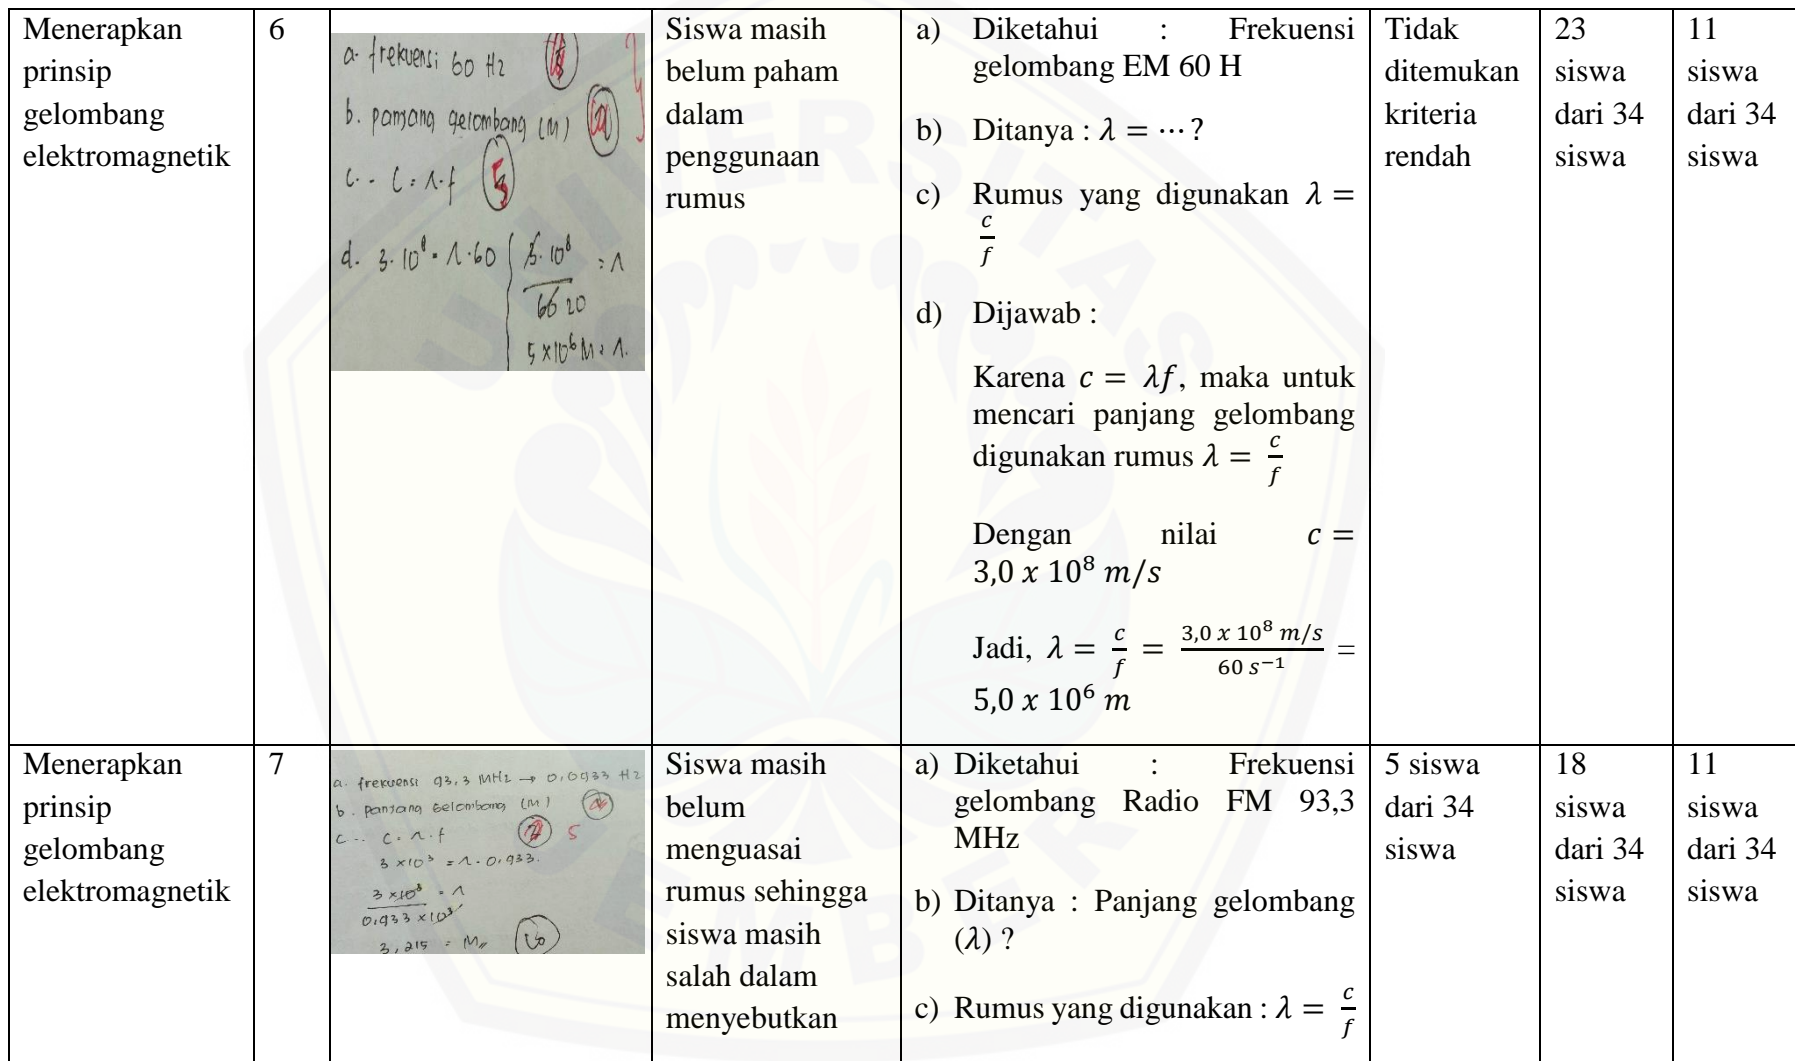 Menerapkan
prinsip
gelombang
elektromagnetik
6
a. frekuensi 60 Hz
b. panjang gelombang (M)
c. - C = λ.f
5
d. 3.10⁸ = λ.60
3.10⁸ = λ
60 20
5 x10⁶ M = λ.
Siswa masih
belum paham
dalam
penggunaan
rumus
a) Diketahui : Frekuensi
gelombang EM 60 H
b) Ditanya : λ = ⋯ ?
c) Rumus yang digunakan λ =
c/f
d) Dijawab :
Karena c = λf, maka untuk
mencari panjang gelombang
digunakan rumus λ = c/f
Dengan nilai c =
3,0 x 10⁸ m/s
Jadi, λ = c/f = 3,0 x 10⁸ m/s / 60 s⁻¹ =
5,0 x 10⁶ m
Tidak
ditemukan
kriteria
rendah
23
siswa
dari 34
siswa
11
siswa
dari 34
siswa
Menerapkan
prinsip
gelombang
elektromagnetik
7
a. frekuensi 93,3 MHz → 0,0933 Hz
b. panjang gelombang (M)
c -. C = λ.f
5
3 x10³ = λ. 0,933.
3 x10⁸ = λ
0,933 x10⁸
3,215 = M,,
Siswa masih
belum
menguasai
rumus sehingga
siswa masih
salah dalam
menyebutkan
a) Diketahui : Frekuensi
gelombang Radio FM 93,3
MHz
b) Ditanya : Panjang gelombang
(λ) ?
c) Rumus yang digunakan : λ = c/f
5 siswa
dari 34
siswa
18
siswa
dari 34
siswa
11
siswa
dari 34
siswa
UNIVERSITAS
EMBER